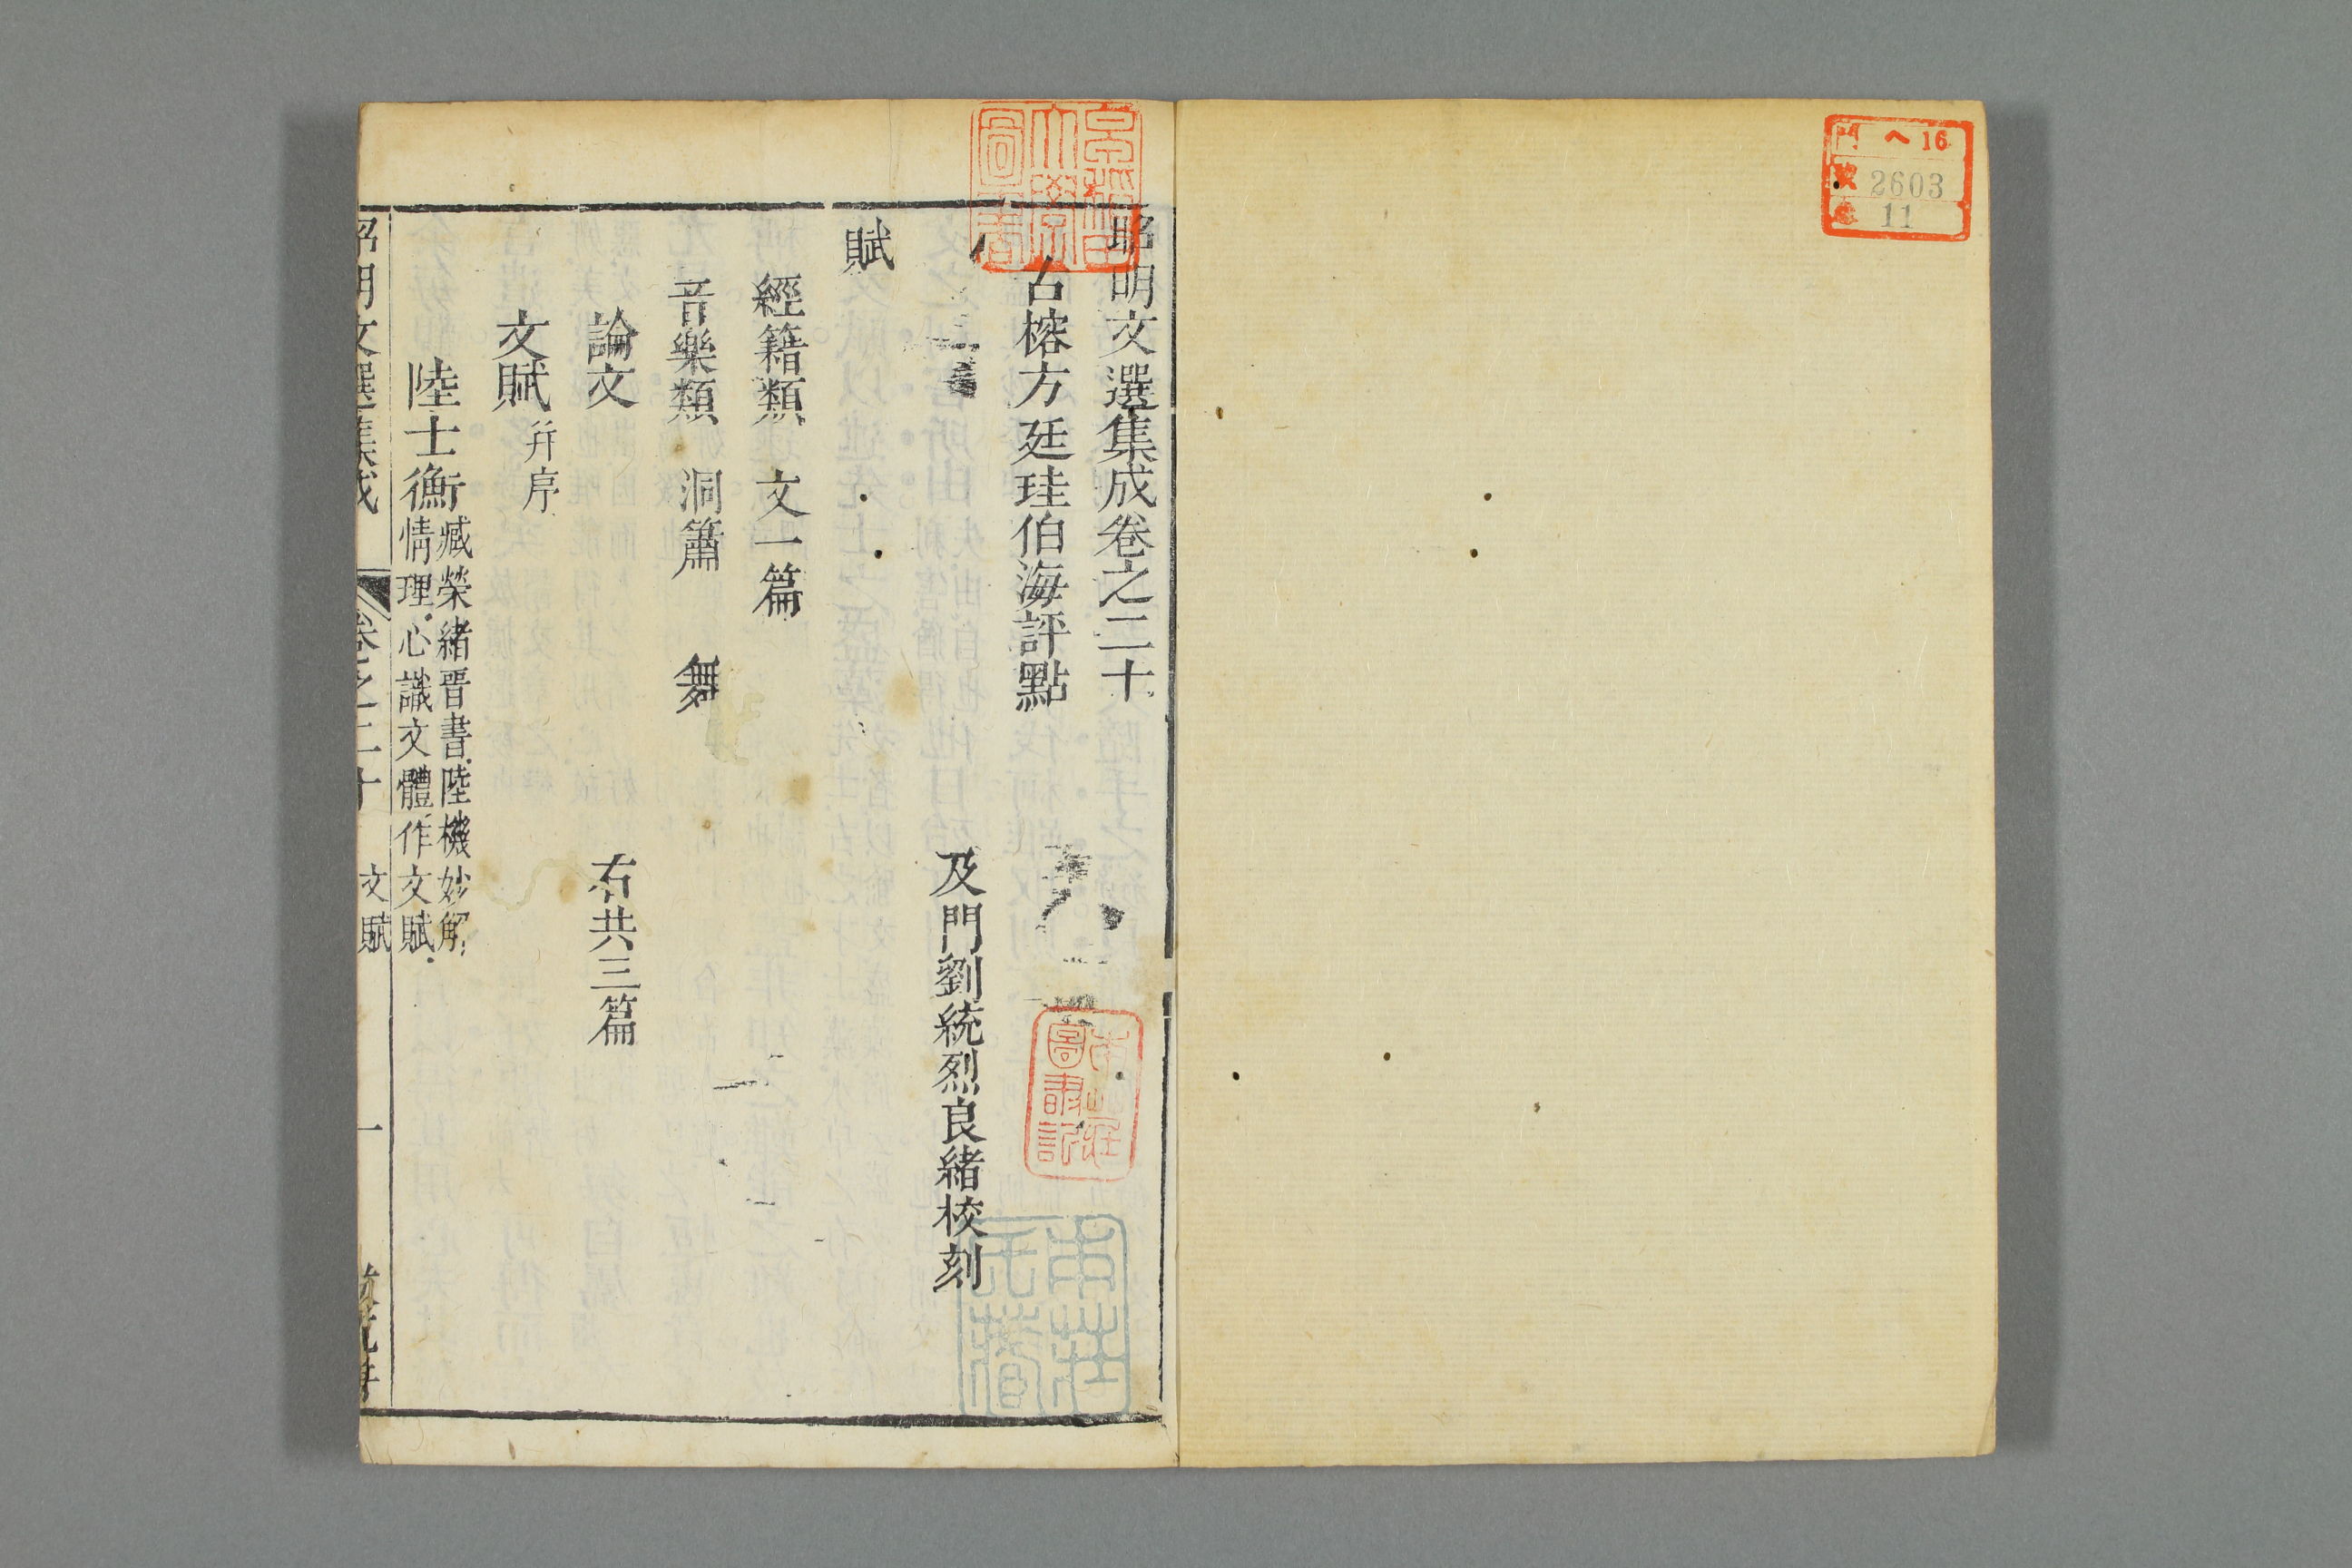 門 ヘ16
號 2603
卷 11
昭明文選集成卷之二十
古榕方廷珪伯海評點
及門劉統烈良緒校刻
賦
經籍類 文一篇
音樂類 洞簫 舞
論文 右共三篇
文賦并序
陸士衡臧榮緒晉書陸機妙解
情理心識文體作文賦
昭明文選集成 卷之二十 文賦 一
圖書記